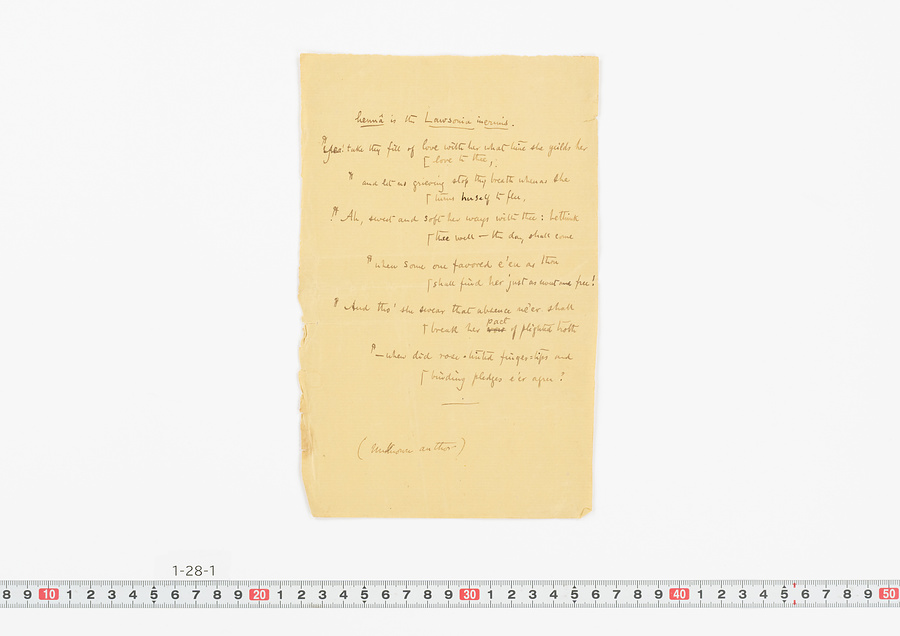 hennâ is the Lawsonia inermis.
"Yes! take thy fill of love with her what time she yields her
[love to thee,
" and let no grieving stop thy breath whenas she
[turns herself to flee,
" Ah, sweet and soft her ways with thee: bethink
[thee well — the day shall come
" when some one favored e'en as thou
[shall find her just as and free!
" And tho' she swear that absence ne'er shall
[break her pact of plighted troth
" — when did rose-tinted finger-tips and
[binding pledges e'er agree?
(Unknown author)
1-28-1
8 9 10 1 2 3 4 5 6 7 8 9 20 1 2 3 4 5 6 7 8 9 30 1 2 3 4 5 6 7 8 9 40 1 2 3 4 5 6 7 8 9 50